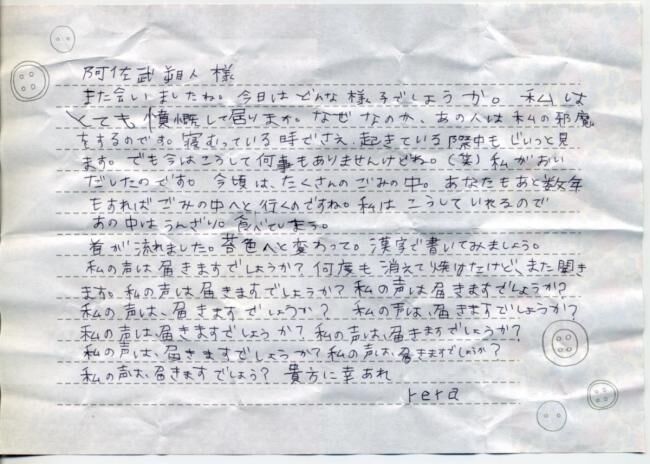 阿佐武 様
また会いましたね。今日はどんな様子でしょうか。 私は
とても憤慨して居ります。なぜなのか、あの人は私の邪魔
をするのです。寝むっている時でさえ、起きている際中もじいっと見
ます。でも今はこうして何事もありませんけどね。(笑)私がおい
だしたのです。今頃は、たくさんのごみの中。あなたもあと数年
もすればごみの中へと行くのですね。私は こうしていれるので
あの中はうんざり。食べて
首が流れました。 色へと変わって。漢字で書いてみましょう。
私の声は届きますでしょうか?何度も消えて焼けたけど、また聞き
ます。私の声は届きますでしょうか?私の声は届きますでしょうか?
私の声は、届きますでしょうか? 私の声は、届きますでしょうか?
私の声は届きますでしょうか?私の声は、届きますでしょうか?
私の声は、届きますでしょうか?私の声は、届きますでしょうか?
私の声は、届きますでしょう? 貴方に幸あれ
rera